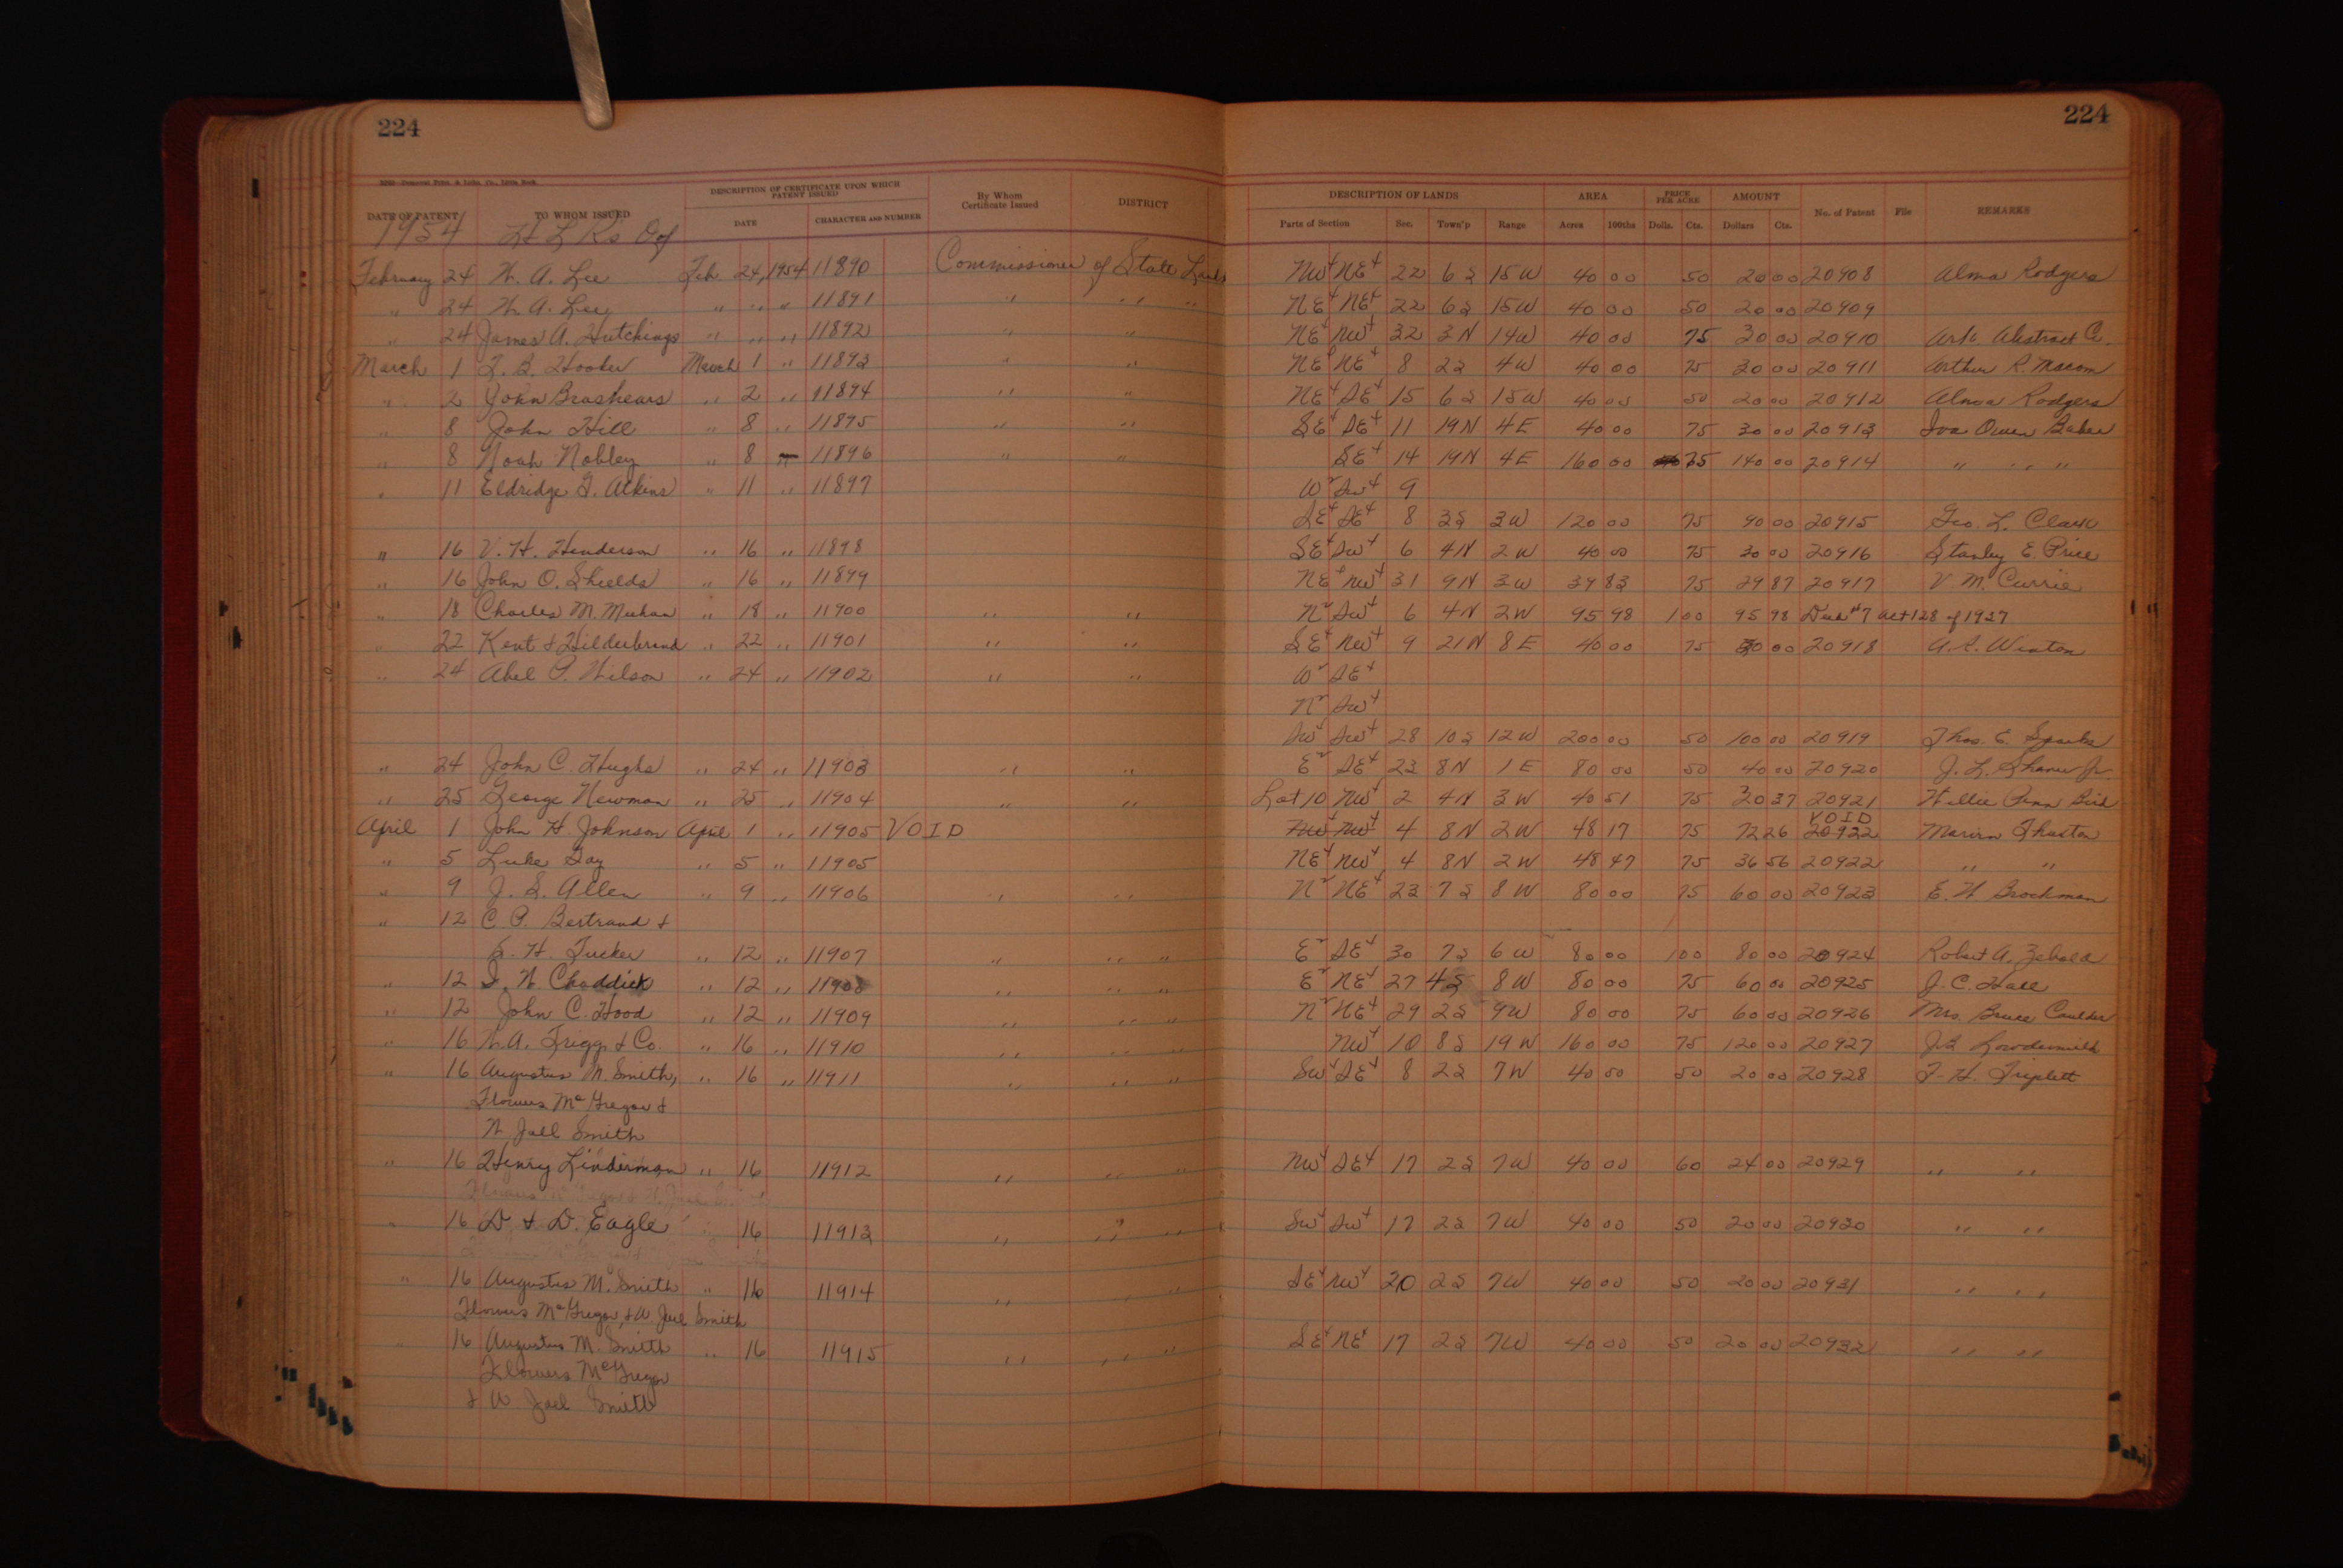 224 224
2280—Democrat Print. & Litho. Co., Little Rock
DATE OF PATENT TO WHOM ISSUED DESCRIPTION OF CERTIFICATE UPON WHICH PATENT ISSUED DATE CHARACTER AND NUMBER By Whom Certificate Issued DISTRICT DESCRIPTION OF LANDS Parts of Section Sec. Town'p Range AREA Acres 100ths PRICE PER ACRE Dolls. Cts. AMOUNT Dollars Cts. No. of Patent File REMARKS
1954
February 24 W. A. Lee Feb. 24, 1954 11890 Commissioner of State Lands NW¼ NE¼ 22 6 S 15 W 40 00 50 20 00 20908 Alma Rodgers
" 24 W. A. Lee " " " 11891 " " " NE¼ NE¼ 22 6 S 15 W 40 00 50 20 00 20909
" 24 James A. Hutchings " " " 11892 " " NE¼ NW¼ 32 3 N 14 W 40 00 75 30 00 20910 Ark. Abstract Co.
March 1 T. B. Hooker March 1 " 11893 " " NE¼ NE¼ 8 2 S 4 W 40 00 75 30 00 20911 Arthur R. Macom
" 2 John Brashears " 2 " 11894 " " NE¼ SE¼ 15 6 S 15 W 40 00 50 20 00 20912 Alma Rodgers
" 8 John Hill " 8 " 11895 " " SE¼ SE¼ 11 19 N 4 E 40 00 75 30 00 20913 Iva Owen Baker
" 8 Noah Nobley " 8 " 11896 " " SE¼ 14 19 N 4 E 160 00 140 00 20914 " " "
" 11 Eldridge G. Atkins " 11 " 11897 W½ SW¼ 9
SE¼ SE¼ 8 3 S 3 W 120 00 75 90 00 20915 Geo. L. Clark
" 16 V. H. Henderson " 16 " 11898 SE¼ SW¼ 6 4 N 2 W 40 00 75 30 00 20916 Stanley E. Price
" 16 John O. Shields " 16 " 11899 NE¼ NW¼ 31 9 N 3 W 39 83 75 29 87 20917 V. M. Currie
" 18 Charles M. Meehan " 18 " 11900 " " N½ SW¼ 6 4 N 2 W 95 98 1 00 95 98 Deed #7 Act 128 of 1937
" 22 Kent & Hilderbrand " 22 " 11901 " " SE¼ NW¼ 9 21 N 8 E 40 00 75 30 00 20918 A. P. Winton
" 24 Abel P. Wilson " 24 " 11902 " " W½ SE¼
N½ SW¼
SW¼ SW¼ 28 10 S 12 W 200 00 50 100 00 20919 Thos. E. Sparks
" 24 John C. Hughs " 24 " 11903 " " E½ SE¼ 23 8 N 1 E 80 00 50 40 00 20920 J. L. Shaver Jr.
" 25 George Newman " 25 " 11904 " " Lot 10 NW¼ 2 4 N 3 W 40 51 75 30 37 20921 Willie Penn Bird
April 1 John H. Johnson April 1 " 11905 VOID NW¼ NW¼ 4 8 N 2 W 48 17 75 72 26 VOID 20922 Marion Thaxton
" 5 Luke Gay " 5 " 11905 NE¼ NW¼ 4 8 N 2 W 48 47 75 36 56 20922 " "
" 9 J. S. Allen " 9 " 11906 " " N½ NE¼ 23 7 S 8 W 80 00 75 60 00 20923 E. W. Brockman
" 12 C. P. Bertrand &
S. H. Tucker " 12 " 11907 " " " E½ SE¼ 30 7 S 6 W 80 00 1 00 80 00 20924 Robert A. Zebold
" 12 I. N. Choddick " 12 " 11908 " " " E½ NE¼ 27 4 S 8 W 80 00 75 60 00 20925 J. C. Hall
" 12 John C. Hood " 12 " 11909 " " " N½ NE¼ 29 2 S 9 W 80 00 75 60 00 20926 Mrs. Bruce Caulder
" 16 W. A. Trigg & Co. " 16 " 11910 " " " NW¼ 10 8 S 19 W 160 00 75 120 00 20927
" 16 Augustus M. Smith, " 16 " 11911 " " " SW¼ SE¼ 8 2 S 7 W 40 00 50 20 00 20928 T. H. Triplett
Flowers McGregor &
W. Joel Smith
" 16 Henry Linderman " 16 11912 " " " NW¼ SE¼ 17 2 S 7 W 40 00 60 24 00 20929 " "
" 16 D. & D. Eagle 16 11913 " " " SW¼ SW¼ 17 2 S 7 W 40 00 50 20 00 20930 " "
" 16 Augustus M. Smith " 16 11914 " " " SE¼ NW¼ 20 2 S 7 W 40 00 50 20 00 20931 " "
Flowers McGregor, & W Joel Smith
" 16 Augustus M. Smith " 16 11915 " " " SE¼ NE¼ 17 2 S 7 W 40 00 50 20 00 20932 " "
Flowers McGregor
& W Joel Smith